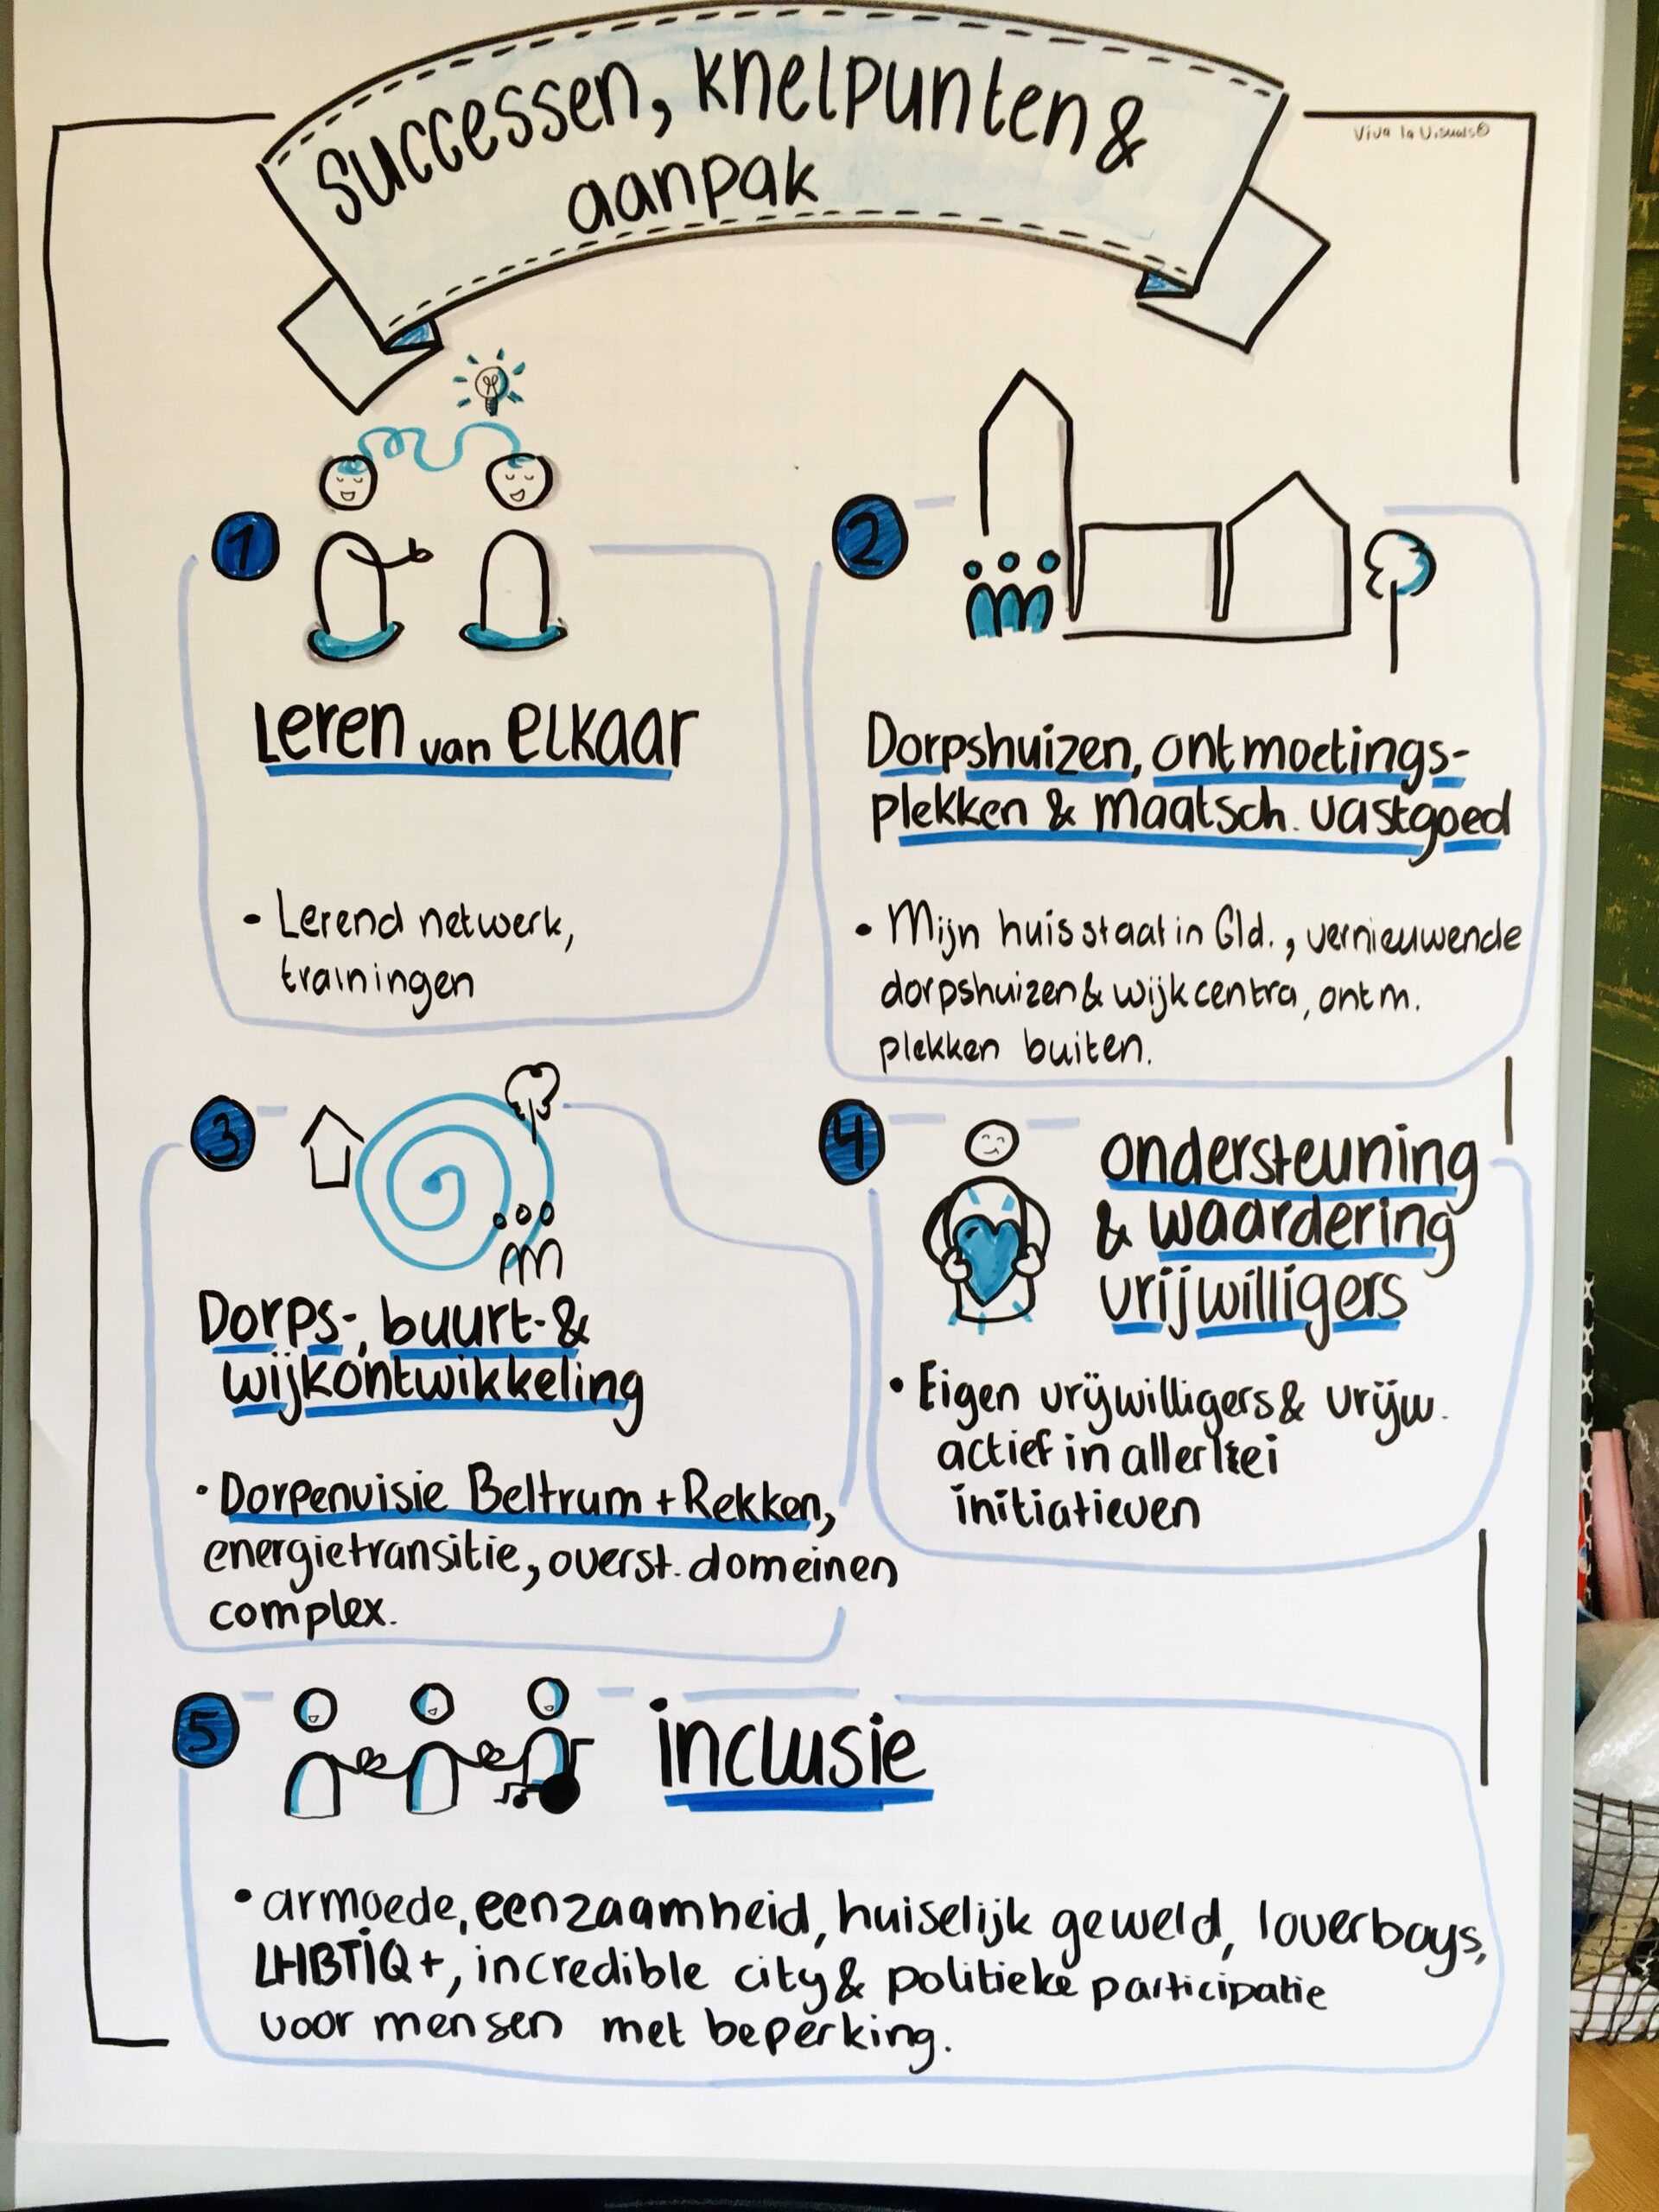 Successen, knelpunten &
aanpak
Viva la Visuals©
1
Leren van elkaar
- Lerend netwerk,
trainingen
2
Dorpshuizen, ontmoetings-
plekken & maatsch. vastgoed
• Mijn huis staat in Gld., vernieuwende
dorpshuizen & wijkcentra, ontm.
plekken buiten.
3
Dorps-, buurt- &
wijkontwikkeling
• Dorpenvisie Beltrum + Rekken,
energietransitie, overst. domeinen
complex.
4
ondersteuning
& waardering
vrijwilligers
• Eigen vrijwilligers & vrijw.
actief in allerlei
initiatieven
5
inclusie
• armoede, eenzaamheid, huiselijk geweld, loverboys,
LHBTIQ+, incredible city & politieke participatie
voor mensen met beperking.